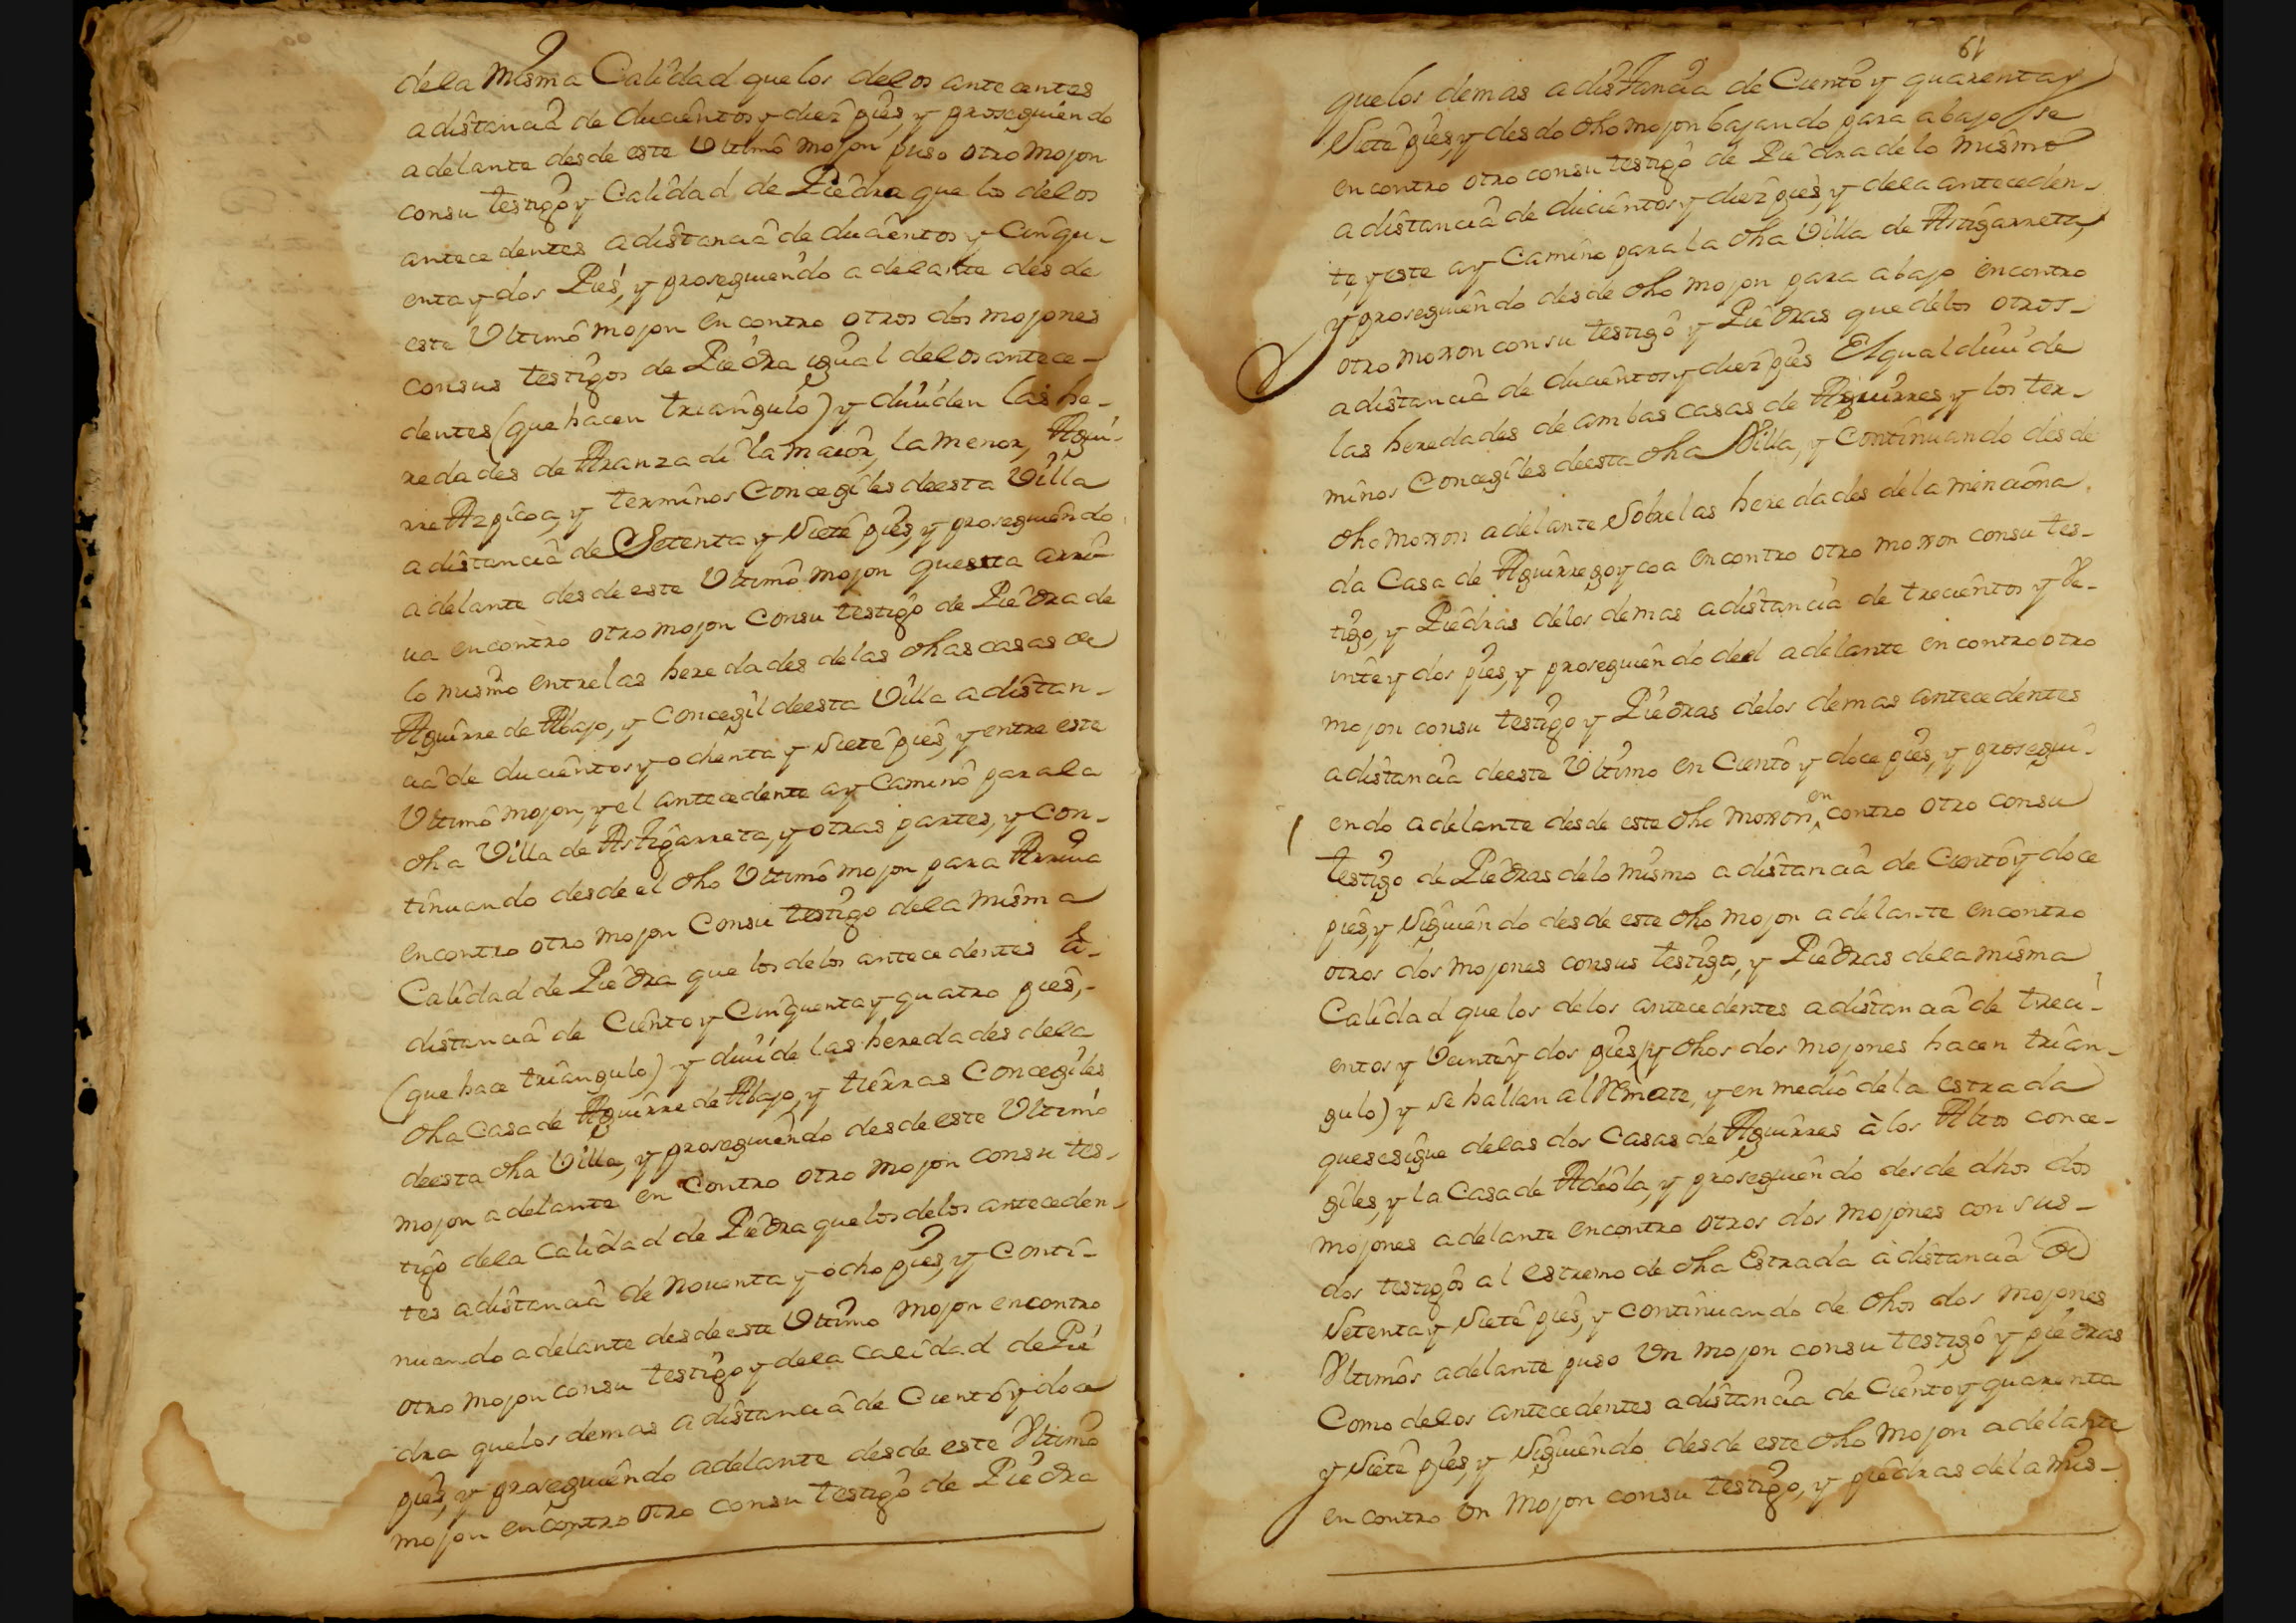 dela Misma Calidad que los delos antecentes
a distancia de ducientos y diez pies, y prosiguiendo
adelante desde este Ultimo mojon puso otro mojon
consu testigo y Calidad de Piedra que lo delos
antecedentes a distancia de ducientos y Cinqu-
enta y dos Pies, y prosiguiendo adelante desde
este Ultimo mojon encontro otros dos mojones
consus testigos de Piedra igual delos antece-
dentes (que hacen triangulo) y diuiden las he-
redades de Aranzadi la maior, la menor, Agui-
rre Azpicoa, y terminos Concegiles deesta Villa
a distancia de Setenta y Siete pies, y prosiguiendo
adelante desde este Ultimo mojon questta arri-
ua encontro otro mojon consu testigo de Piedra de
lo mismo entrelas heredades delas dhas casas de
Aguirre de Abajo, y concegil deesta Villa a distan-
cia de ducientos y ochenta y Siete pies, y entre este
Ultimo mojon, y el antecedente ay Camino parala
dha Villa de Astigarreta, y otras partes, y Con-
tinuando desde el dho Ultimo mojon para Arriua
encontro otro mojon Consu testigo dela misma
Calidad de Piedra que los delos antecedentes a-
distancia de Ciento y Cinquenta y quatro pies,-
(que hace triangulo) y diuide las heredades dela
dha Casa de Aguirre de Abajo, y tierras Concegiles
deesta dha Villa, y prosiguiendo desde este Ultimo
mojon adelante en Contro otro mojon consu tes-
tigo dela Calidad de Piedra que los delos anteceden-
tes a distancia de Nouenta y ocho pies, y Conti-
nuando adelante desde este Ultimo mojon encontro
otro mojon consu testigo y dela calidad de Pie
dra quelos demas a distancia de Ciento y doce
pies, y prosiguiendo adelante desde este Ultimo
mojon encontro otro consu testigo de Piedra
61
quelos demas a distancia de Ciento y quarenta y
Siete pies, y desdo dho mojon bajando para abajo se
encontro otro consu testigo de Piedra delo mismo
a distancia de ducientos y diez pies, y dela anteceden-
te, y este ay Camino para la dha Villa de Astigarreta,
y prosiguiendo desde dho mojon para abajo encontro
otro moxon consu testigo y Piedras que delos otros-
a distancia de ducientos y diez pies El qual diuide
las heredades de ambas casas de Aguirres, y los ter-
minos Concegiles deesta dha Villa, y Continuando desde
dho moxon adelante Sobrelas heredades dela menciona
da Casa de Aguirregoycoa encontro otro moxon consu tes-
tigo, y Piedras delos demas a distancia de trecientos y Ve-
inte y dos pies, y prosiguiendo deel adelante encontro otro
mojon consu testigo y Piedras delos demas antecedentes
a distancia deeste Ultimo en Ciento y doce pies, y prosegui-
endo adelante desde este dho moxon, en contro otro consu
testigo de Piedras delo mismo a distancia de Ciento y doce
pies, y Siguiendo desde este dho mojon adelante encontro
otros dos mojones consus testigos, y Piedras dela misma
Calidad que los delos antecedentes a distancia de treci-
entos y Veinte y dos pies (y dhos dos mojones hacen trian-
gulo) y se hallan al Remate, y en medio dela estrada
quesesigue delas dos Casas de Aguirres à los Altos conce-
giles, y la Casa de Adeola, y prosiguiendo desde dhos dos
mojones adelante encontro otros dos mojones con sus-
dos testigos al estremo de dha Estrada a distancia de
Setenta y Siete pies, y continuando de dhos dos mojones
Ultimos adelante puso Un mojon consu testigo y piedras
Como delos antecedentes a distancia de Ciento y quarenta
y Siete pies, y Siguiendo desde este dho mojon adelante
encontro Un mojon consu testigo, y piedras dela mis-